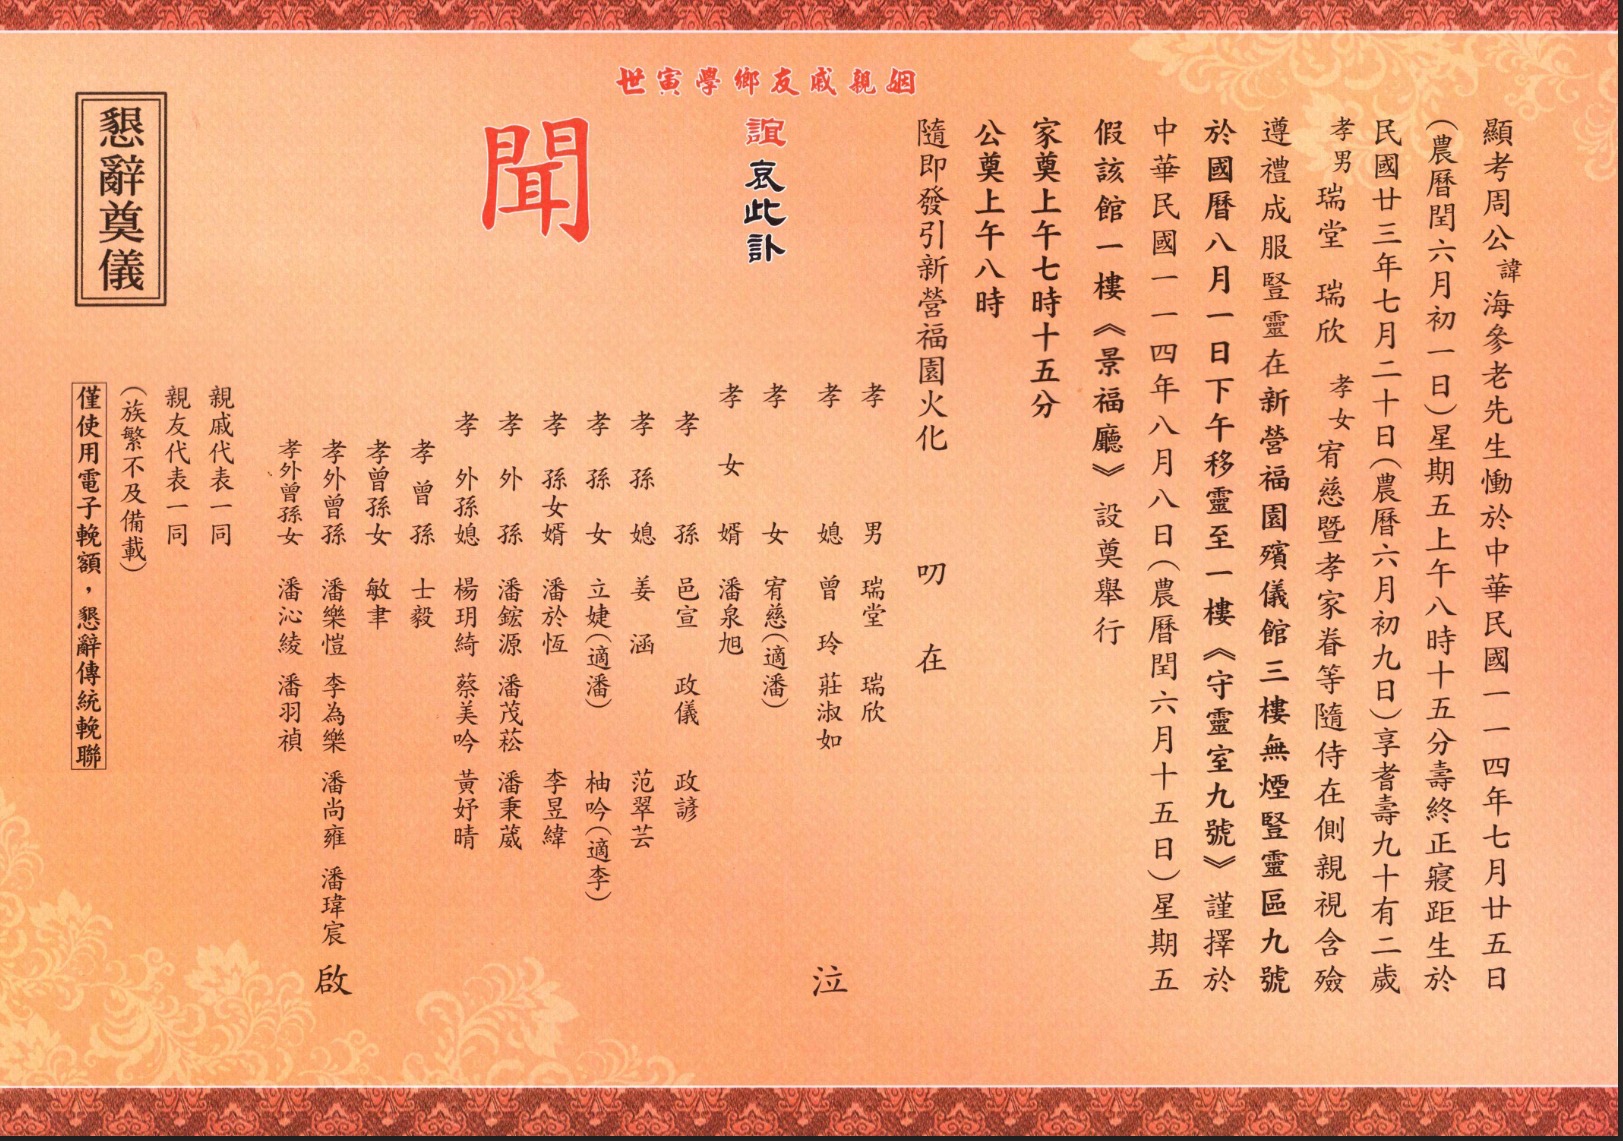 顯考周公諱海參老先生慟於中華民國一一四年七月廿五日
(農曆閏六月初一日)星期五上午八時十五分壽終正寢距生於
民國廿三年七月二十日(農曆六月初九日)享耆壽九十有二歲
孝男瑞堂 瑞欣 孝女宥慈暨孝家眷等隨侍在側親視含殮
遵禮成服豎靈在新營福園殯儀館三樓無煙豎靈區九號
於國曆八月一日下午移靈至一樓《守靈室九號》謹擇於
中華民國一一四年八月八日(農曆閏六月十五日)星期五
假該館一樓《景福廳》設奠舉行
家奠上午七時十五分
公奠上午八時
隨即發引新營福園火化 叨 在
姻親戚友鄉學寅世
誼哀此訃
聞
孝男 瑞堂 瑞欣
孝媳 曾玲 莊淑如
孝女 宥慈(適潘)
孝女婿 潘泉旭
孝孫 邑宣 政儀 政諺
孝孫媳 姜涵 范翠芸
孝孫女 立婕(適潘) 柚吟(適李)
孝孫女婿 潘於恆 李昱緯
孝外孫 潘鋐源 潘茂菘 潘秉葳
孝外孫媳 楊玥綺 蔡美吟 黃妤晴
孝曾孫 士毅
孝曾孫女 敏聿
孝外曾孫 潘樂愷 李為樂 潘尚雍 潘瑋宸
孝外曾孫女 潘沁綾 潘羽禎
泣
啟
親戚代表一同
親友代表一同
(族繁不及備載)
懇辭奠儀
僅使用電子輓額,懇辭傳統輓聯